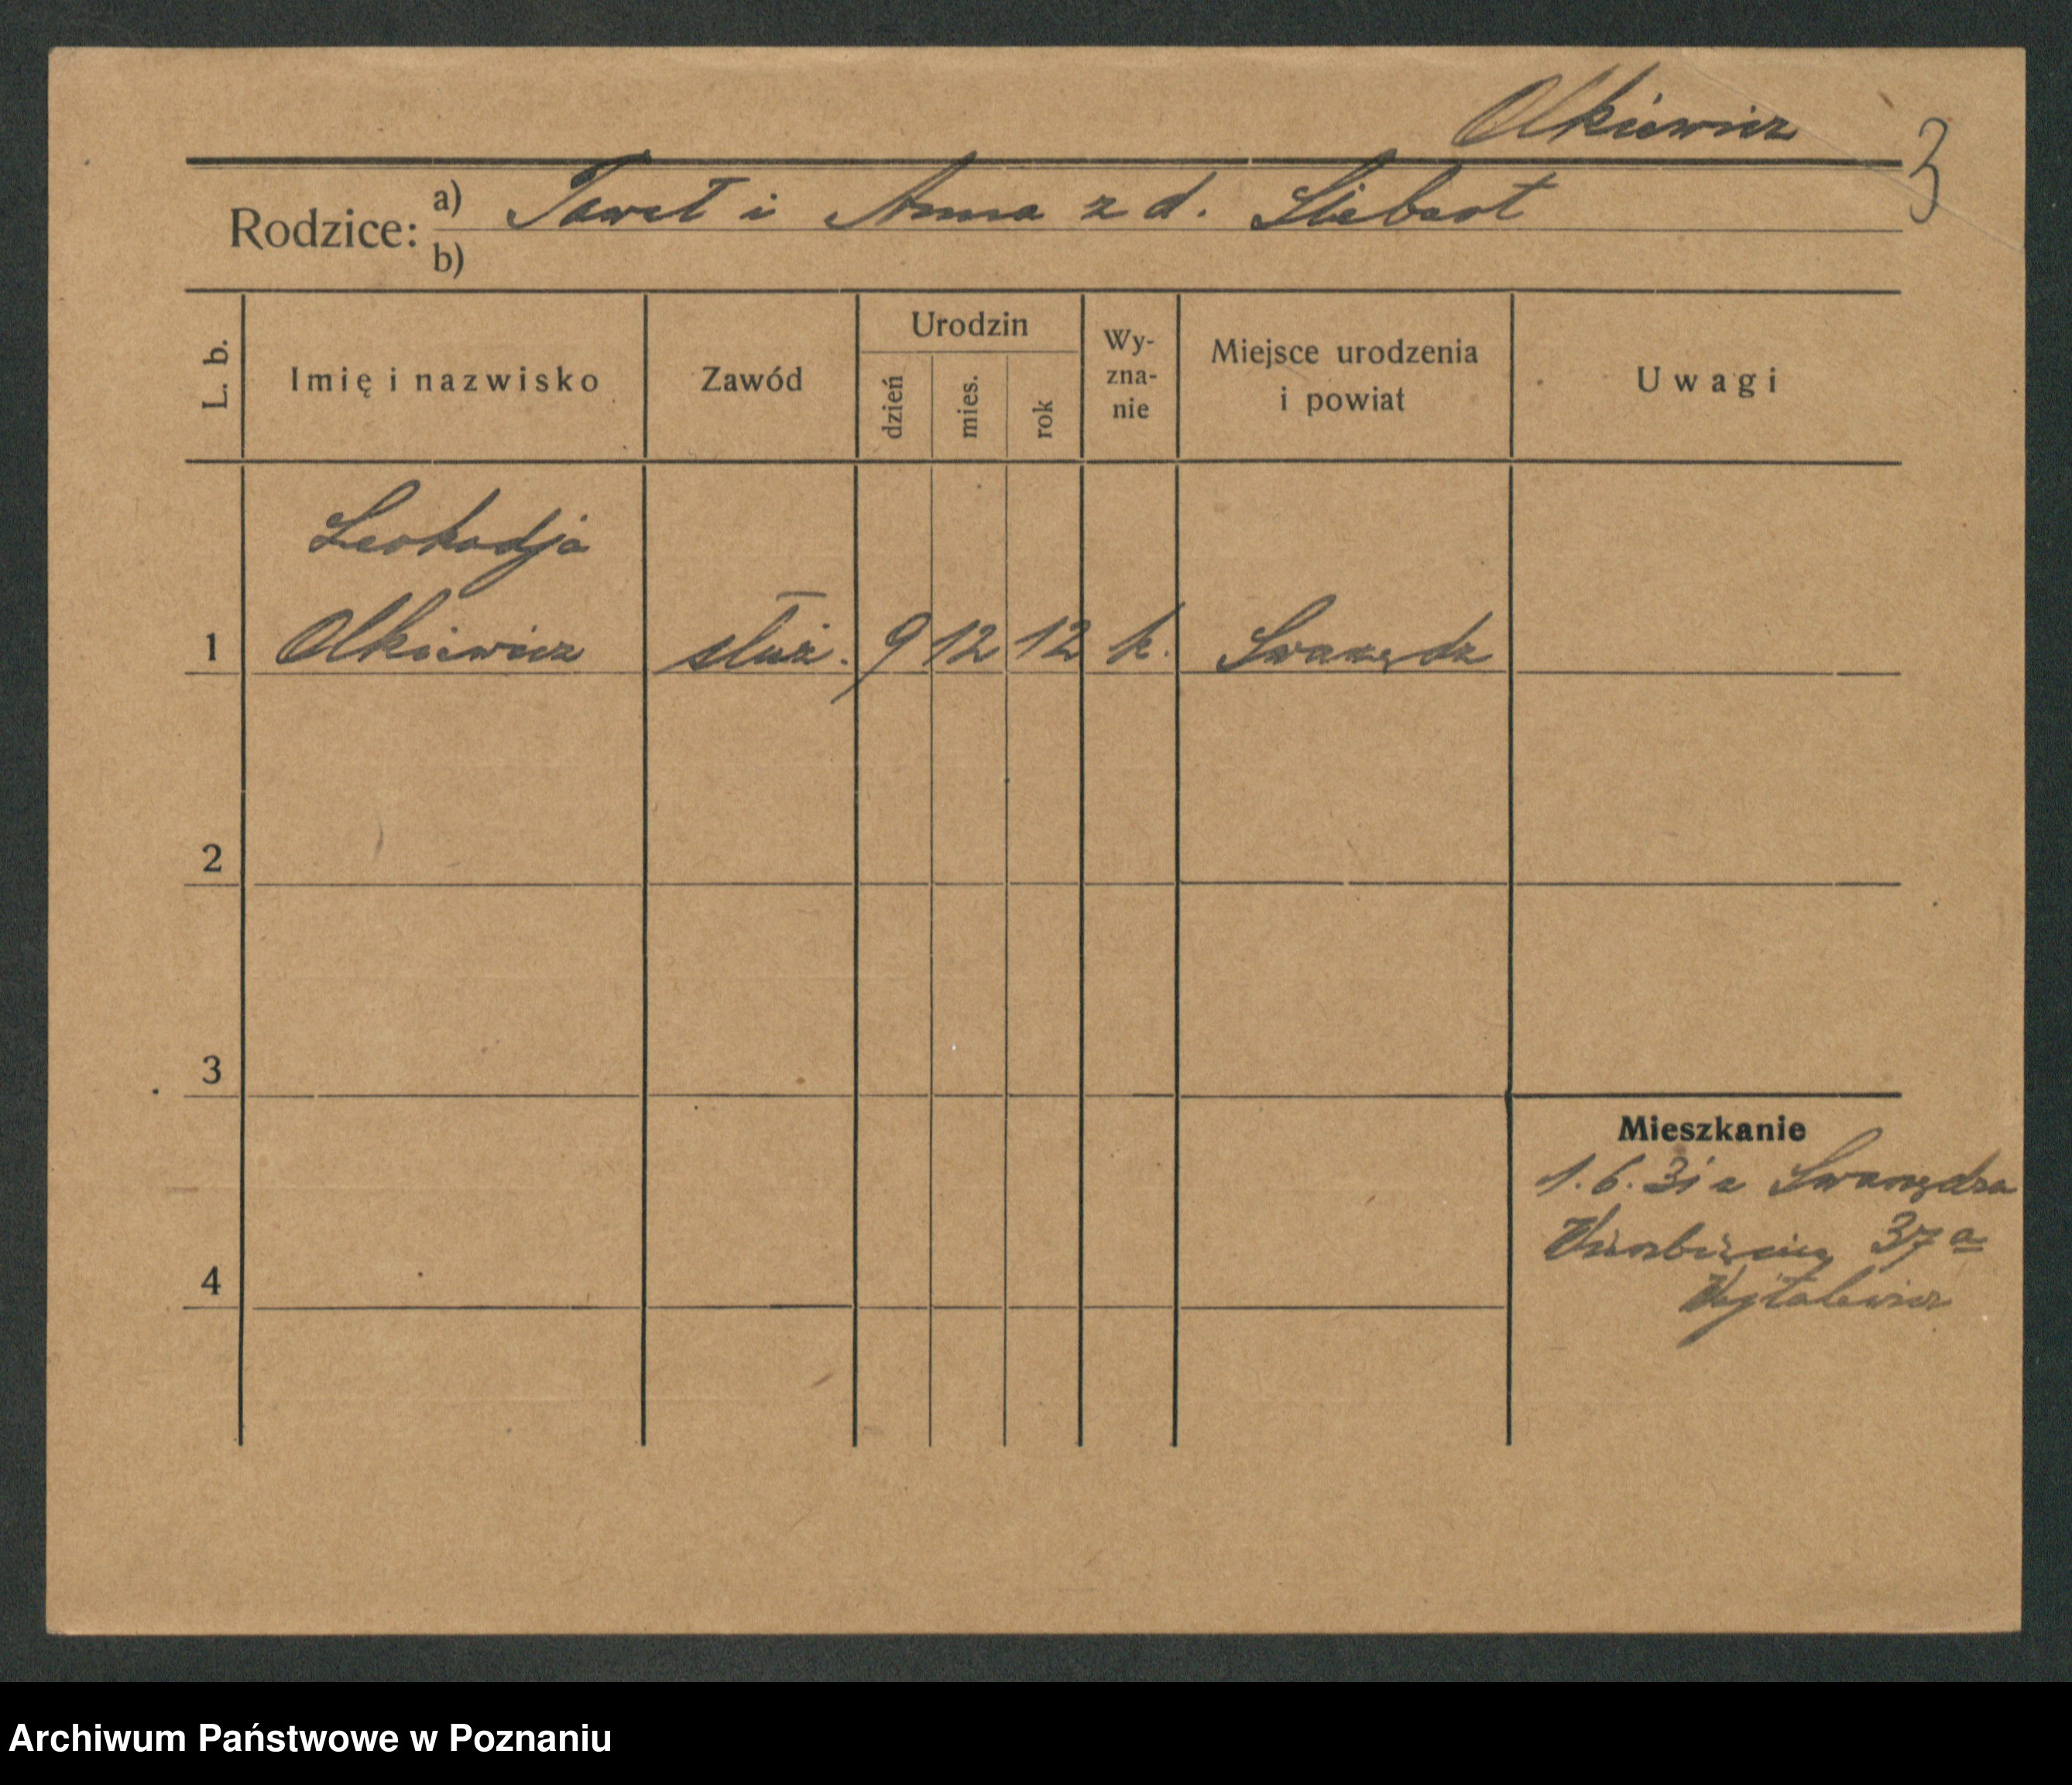 Olkiewicz
3
Rodzice: a) Paweł i Anna z d. Stiebart
b)
L. b.
Imię i nazwisko
Zawód
Urodzin
dzień
mies.
rok
Wy-
zna-
nie
Miejsce urodzenia
i powiat
Uwagi
Leokadja
1 Olkiewicz służ. 9 12 12 k. Swarzędz
2
3
4
Mieszkanie
1.6.31 z Swarzędza
37a
Archiwum Państwowe w Poznaniu